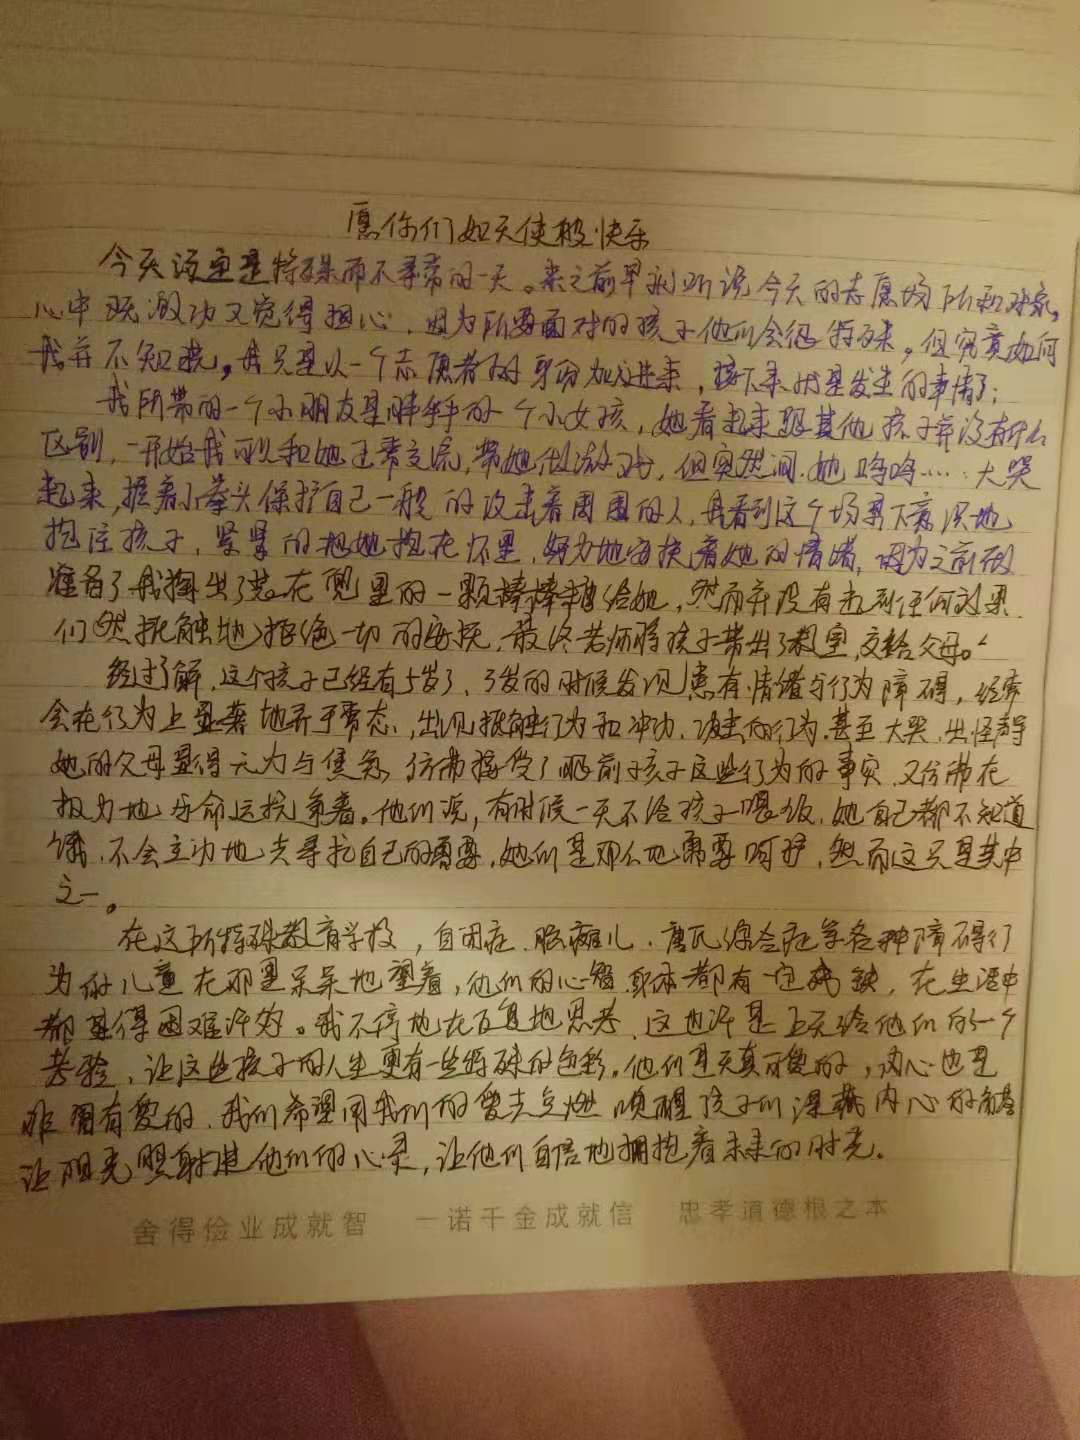 愿你们如天使极快乐
今天注定是特殊而不寻常的一天。来之前早就听说今天的志愿场所和对象,
心中既激动又觉得担心,因为所要面对的孩子他们会很特殊。但究竟如何
我并不知晓,我只是以一个志愿者的身份加进来,接下来就是发生的事情了:
我所带的一个小朋友是胖胖的一个小女孩,她看起来跟其他孩子并没有什么
区别,一开始我可以和她正常交流,带她做游戏,但突然间.她呜呜……大哭
起来,握着小拳头保护自己一般的攻击着周围的人,我看到这个场景下意识地
抱住孩子,紧紧的把她抱在怀里,努力地安抚着她的情绪,因为之前
准备了我掏出了装在兜里的一颗棒棒糖给她,然而并没有起到任何效果
们然抵触地拒绝一切的安抚,最终老师将孩子带出了教室,交给父母。
经过了解,这个孩子已经有5岁了,3岁的时候发现患有情绪与行为障碍,经常
会在行为上显著地异于常态,出现抵触行为和冲动、攻击的行为.甚至大哭、出怪声等
她的父母显得无力与焦急 仿佛接受了眼前孩子这些行为的事实 又仿佛在
极力地与命运抗争着。他们说,有时候一天不给孩子喂饭,她自己都不知道
饿,不会主动地去寻找自己的需要,她们是那么地需要呵护,然而这只是其中
之一。
在这所特殊教育学校,自闭症、脑瘫儿、唐氏综合症等各种障碍行
为的儿童在那里呆呆地望着,他们的心智、身体都有一定残缺,在生活中
都显得困难许多。我不停地在反复地思考,这也许是上天给他们的一个
考验,让这些孩子的人生更有一些特殊的色彩。他们是天真可爱的,内心也是
非常有爱的,我们希望用我们的爱去点燃 唤醒孩子们深藏内心的
让阳光照射进他们的心灵,让他们自信地拥抱着未来的时光。
舍得俭业成就智 一诺千金成就信 忠孝道德根之本